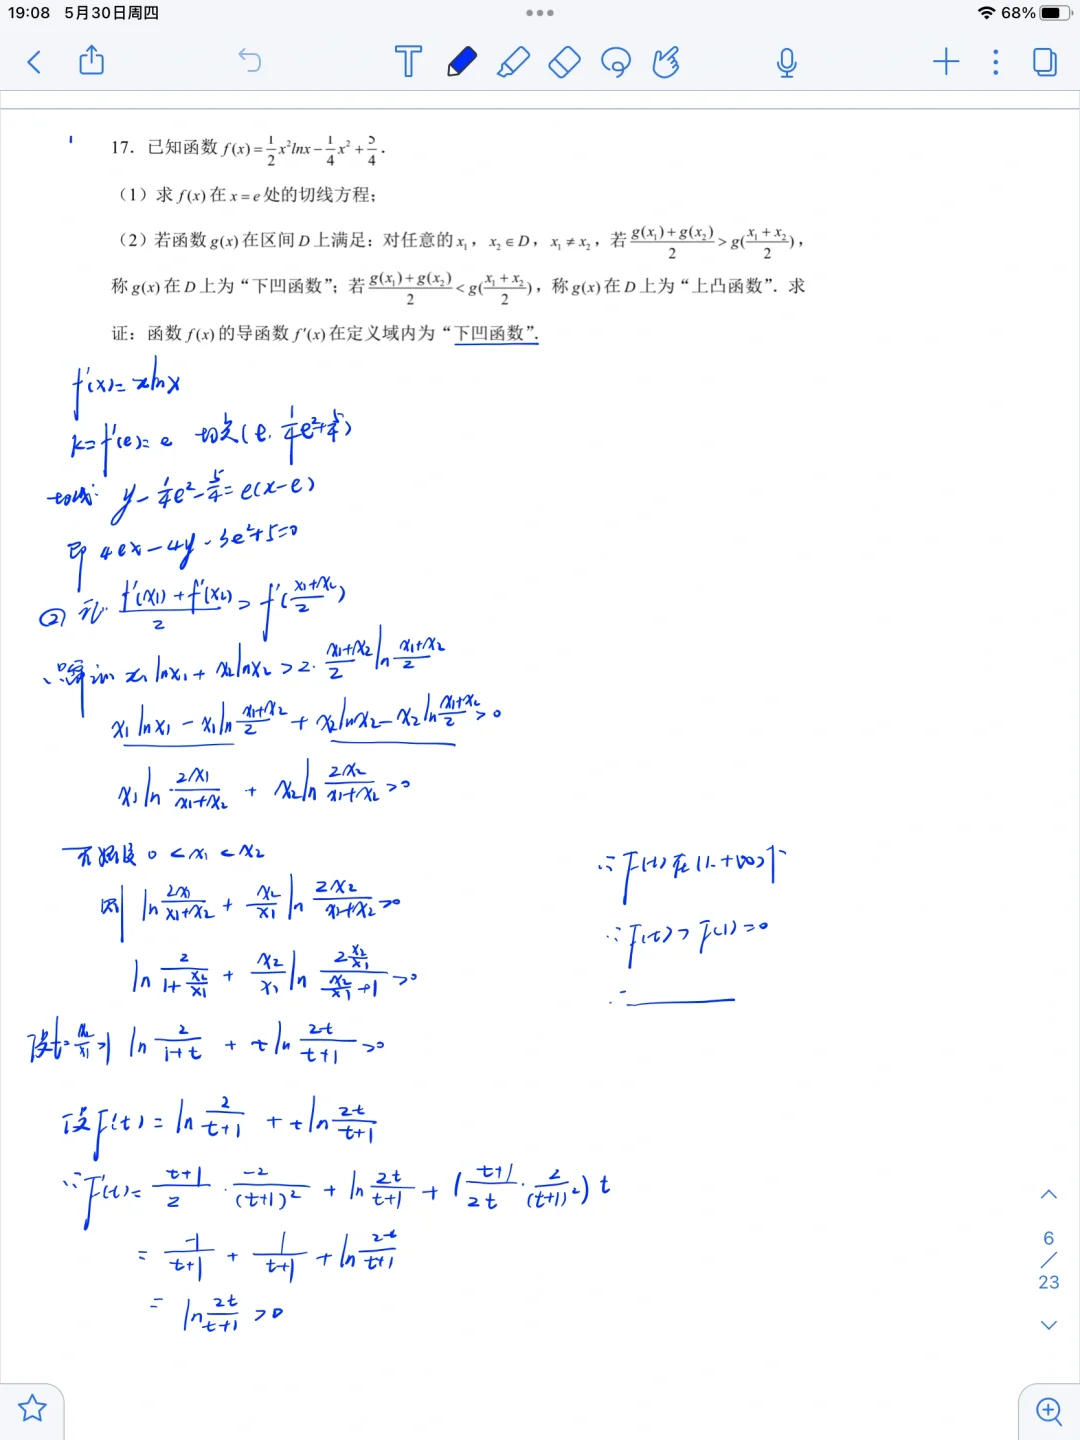 19:08 5月30日周四
68%
17. 已知函数 f(x)=1/2 x²lnx−1/4 x²+5/4.
（1）求 f(x) 在 x=e 处的切线方程；
（2）若函数 g(x) 在区间 D 上满足：对任意的 x₁，x₂∈D，x₁≠x₂，若 (g(x₁)+g(x₂))/2 > g((x₁+x₂)/2)，
称 g(x) 在 D 上为“下凹函数”；若 (g(x₁)+g(x₂))/2 < g((x₁+x₂)/2)，称 g(x) 在 D 上为“上凸函数”．求
证：函数 f(x) 的导函数 f′(x) 在定义域内为“下凹函数”.
f'(x)=xlnx
k=f'(e)=e 切点(e, 1/4 e²+5/4)
切线: y−1/4 e²−5/4=e(x−e)
即 4ex−4y−3e²+5=0
② 证: (f'(x₁)+f'(x₂))/2 > f'((x₁+x₂)/2)
只需证 x₁lnx₁+x₂lnx₂>2·(x₁+x₂)/2 ln (x₁+x₂)/2
x₁lnx₁−x₁ln (x₁+x₂)/2 + x₂lnx₂−x₂ln (x₁+x₂)/2 >0
x₁ln 2x₁/(x₁+x₂) + x₂ln 2x₂/(x₁+x₂) >0
不妨设 0<x₁<x₂
则 ln 2x₁/(x₁+x₂) + x₂/x₁ ln 2x₂/(x₁+x₂) >0
ln 2/(1+x₂/x₁) + x₂/x₁ ln (2x₂/x₁)/(x₂/x₁+1) >0
设t=x₂/x₁>1 ln 2/(1+t) + tln 2t/(t+1) >0
设F(t)=ln 2/(t+1) + tln 2t/(t+1)
∴F'(t)= (t+1)/2 · −2/(t+1)² + ln 2t/(t+1) + ((t+1)/2t · 2/(t+1)²) t
= −1/(t+1) + 1/(t+1) + ln 2t/(t+1)
= ln 2t/(t+1) >0
∴F(t)在(1,+∞)↑
∴F(t)>F(1)=0
∴
6
/
23